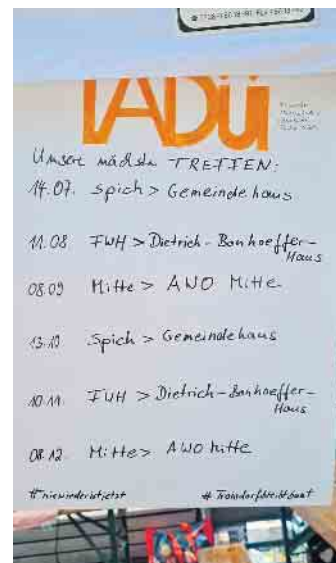 IADÜ
Unsere nächsten TREFFEN:
14.07. Spich > Gemeindehaus
11.08 FWH > Dietrich-Bonhoeffer-
Haus
08.09 Mitte > AWO Mitte
13.10 Spich > Gemeindehaus
10.11. FWH > Dietrich-Bonhoeffer-
Haus
08.12 Mitte > AWO Mitte
#niewiederistjetzt #Troisdorfbleibtbunt